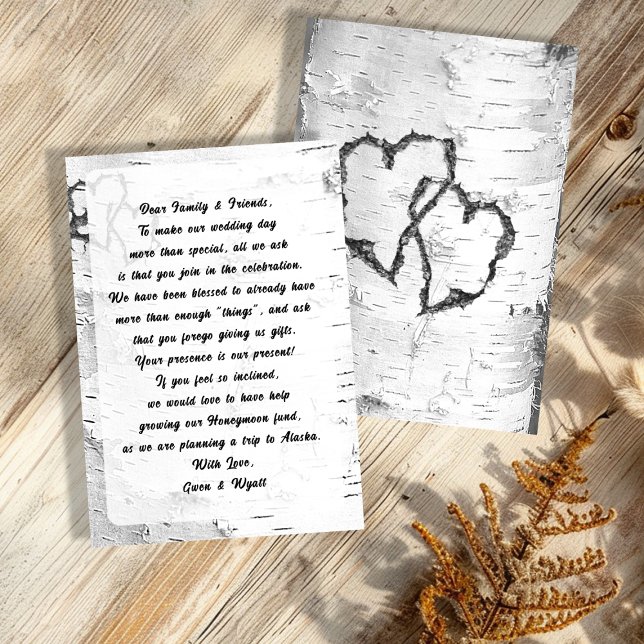 Dear Family & Friends,
To make our wedding day
more than special, all we ask
is that you join in the celebration.
We have been blessed to already have
more than enough "things", and ask
that you forego giving us gifts.
Your presence is our present!
If you feel so inclined,
we would love to have help
growing our Honeymoon fund,
as we are planning a trip to Alaska.
With Love,
Gwen & Wyatt